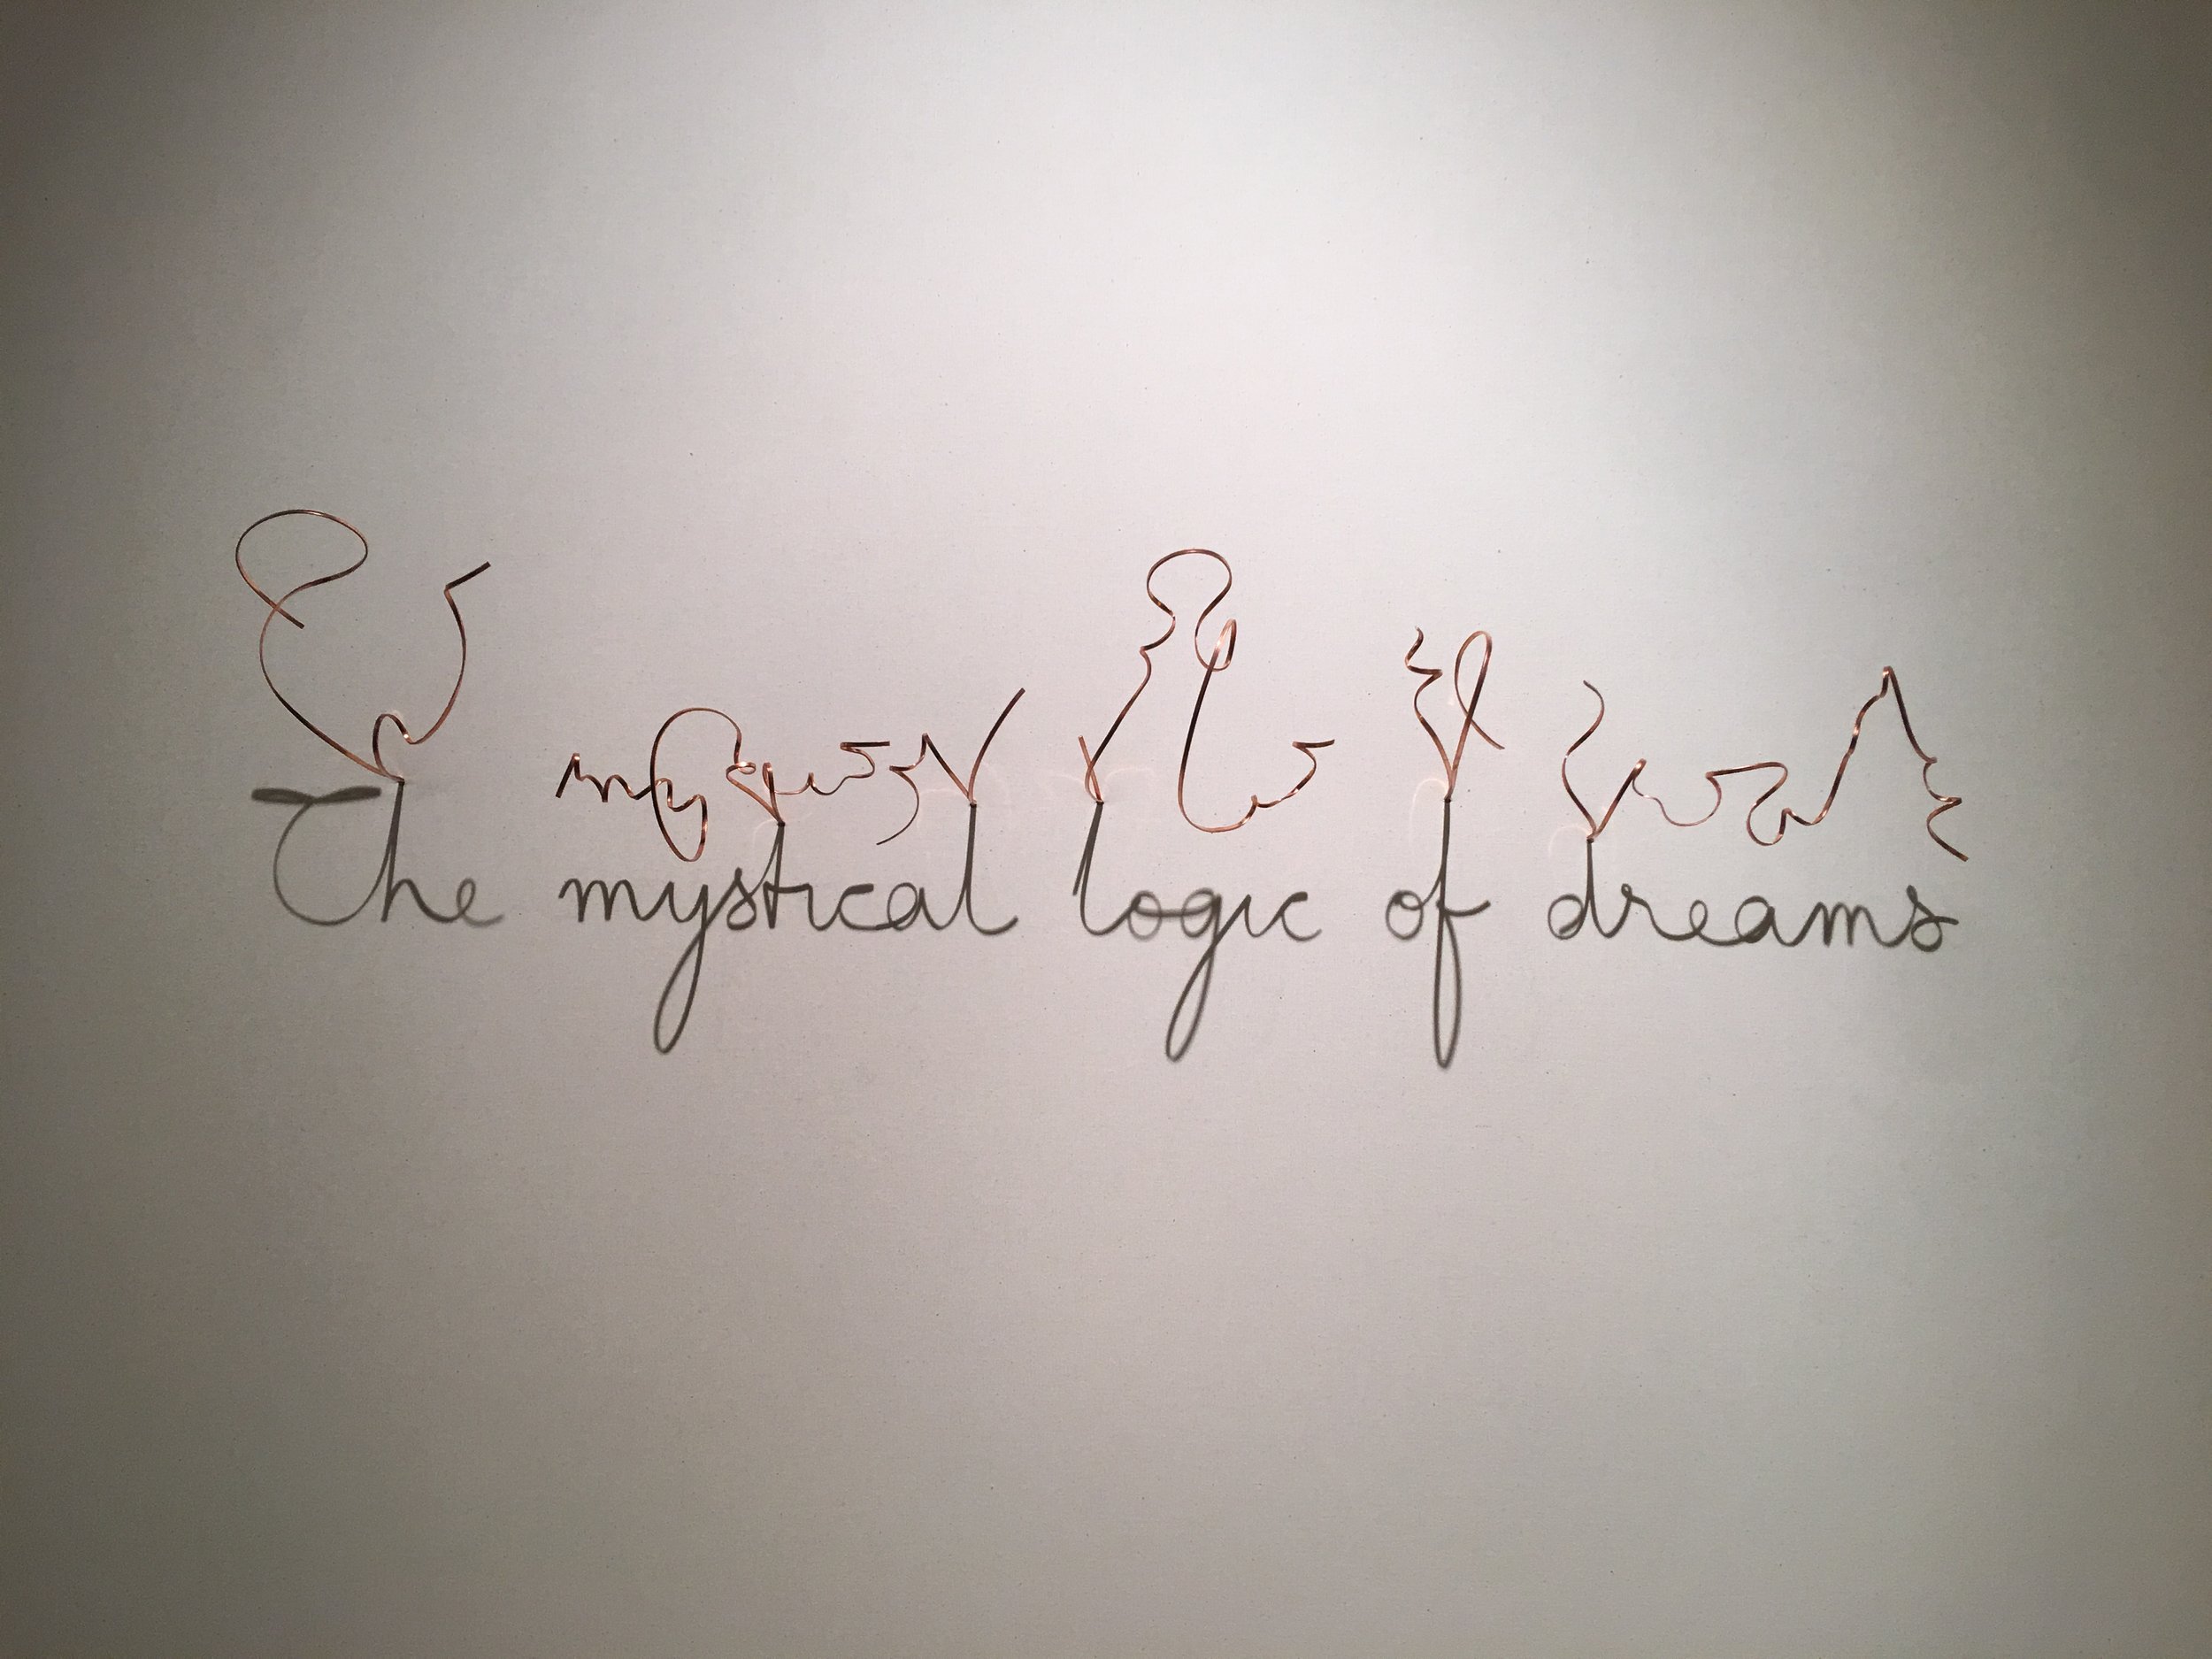 The mystical logic of dreams